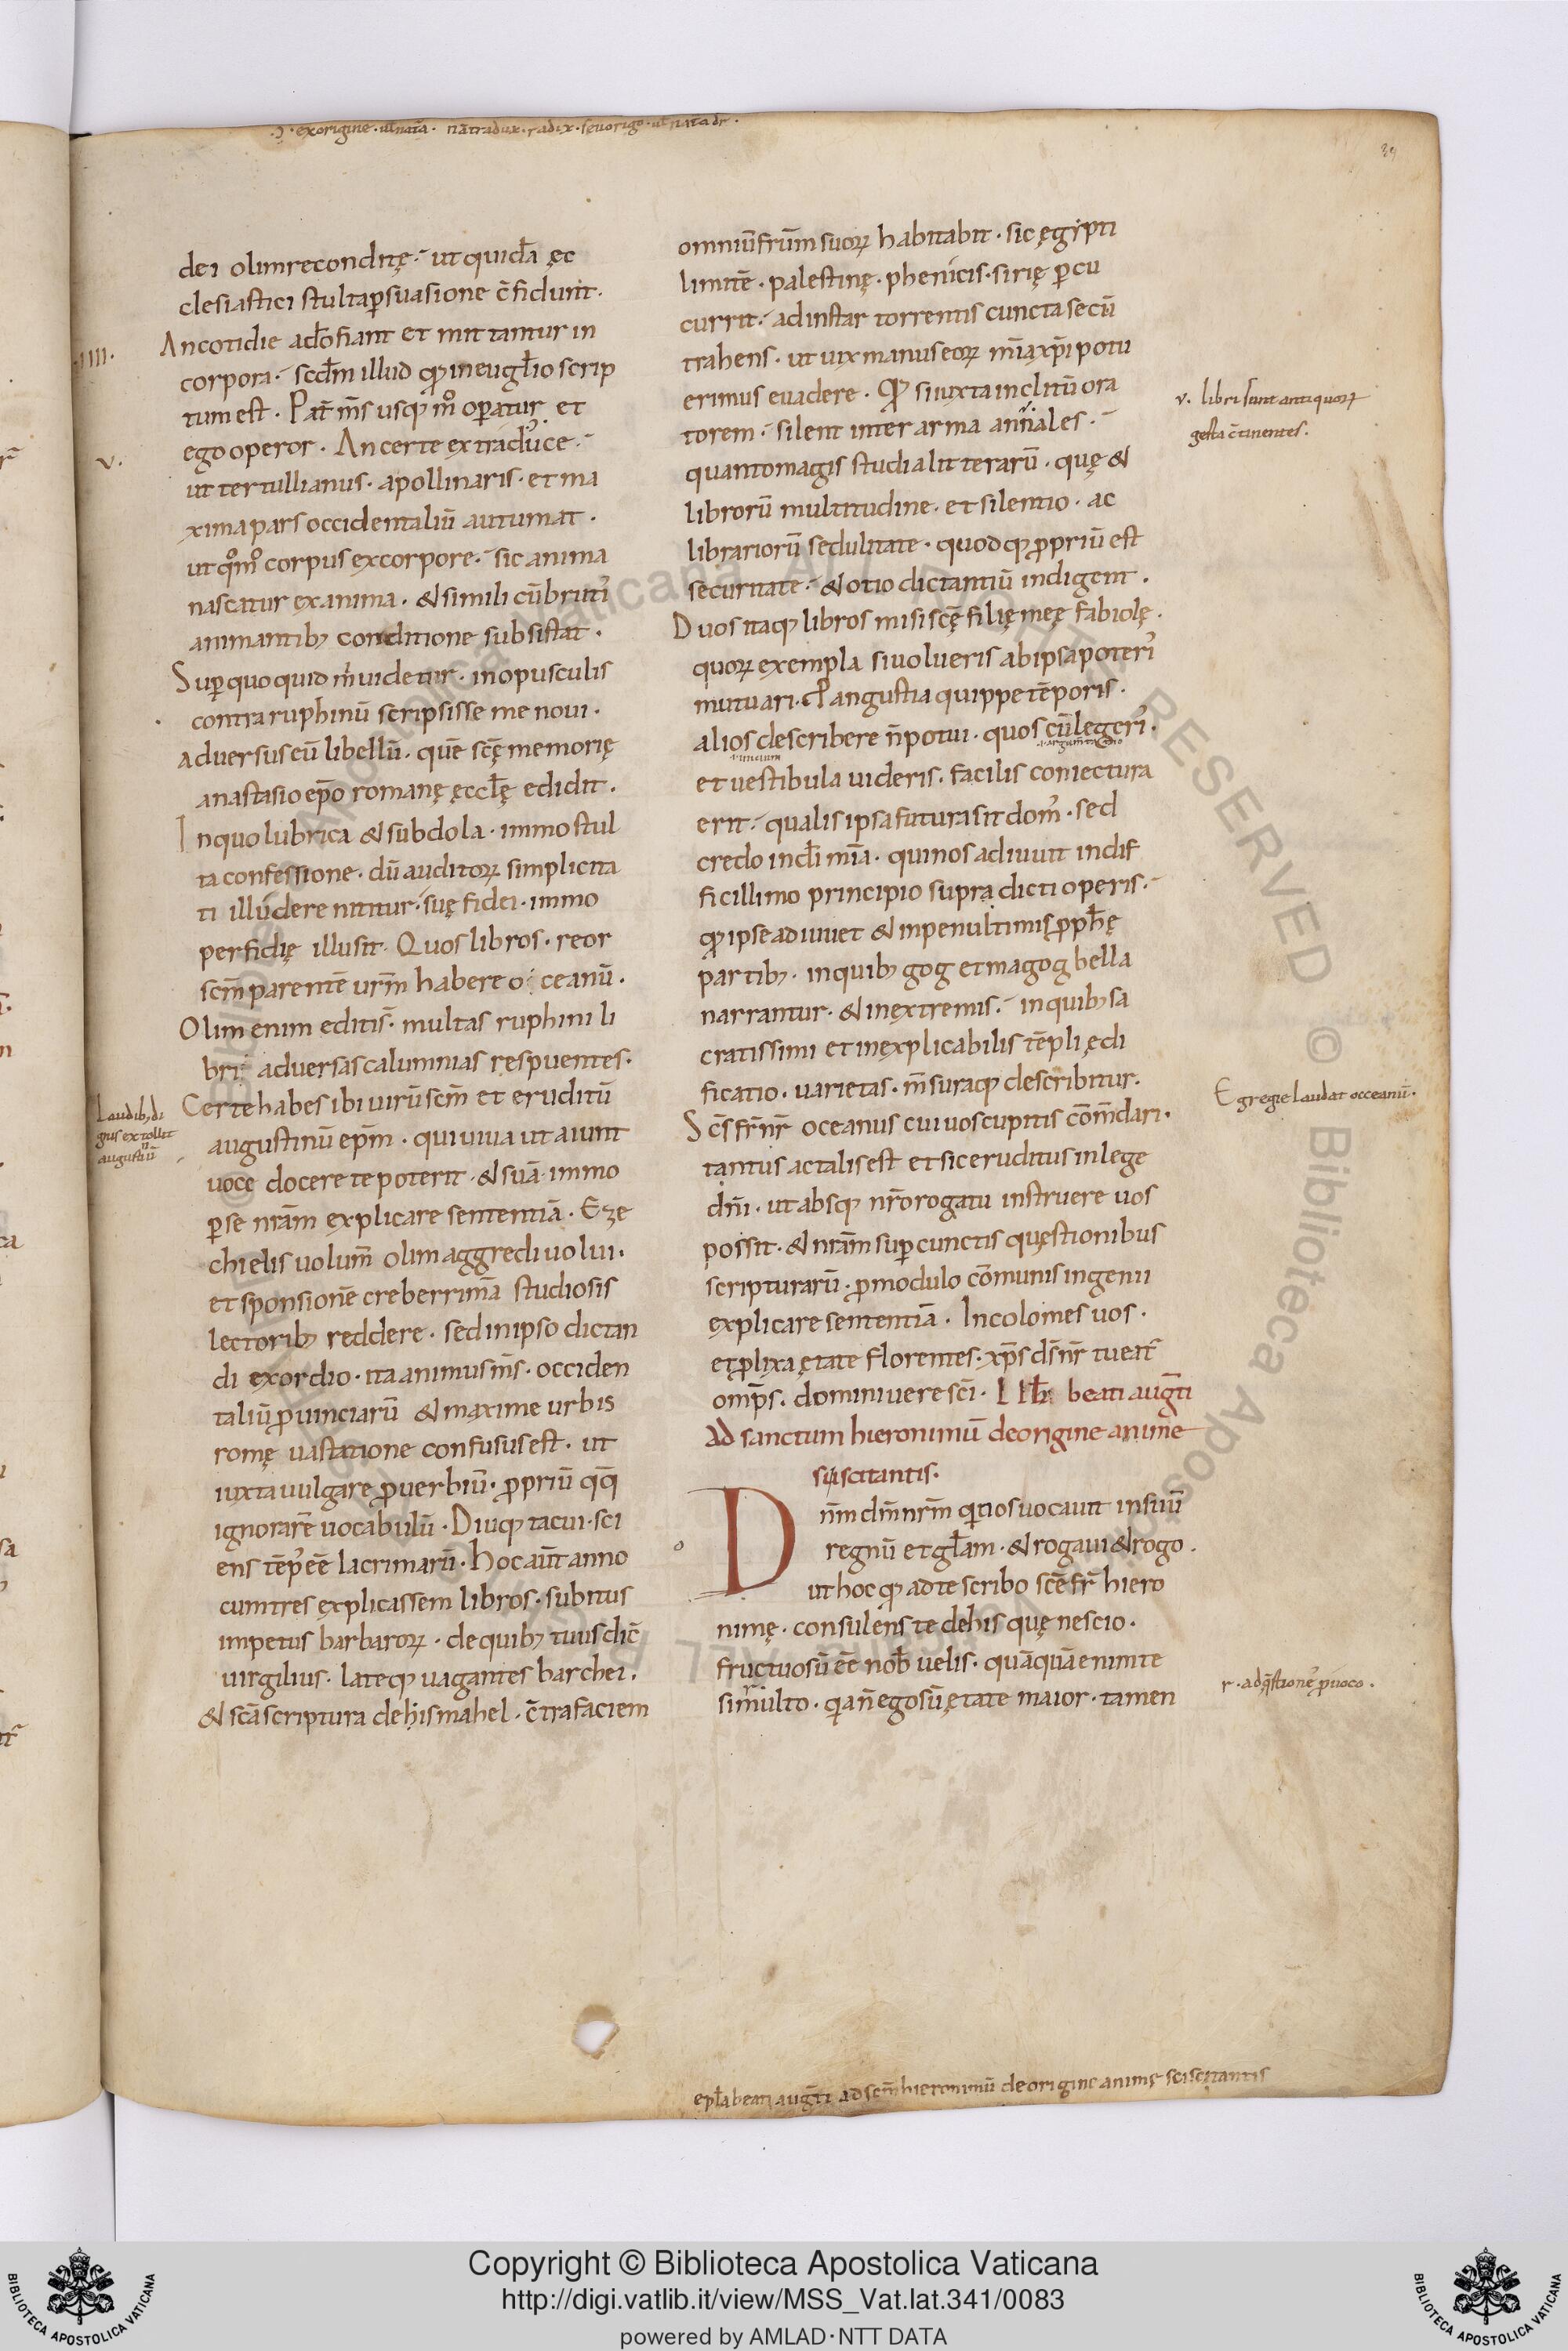 ·ɔ· ex origine · ul̄ nat̄a · nā tradux · radix · seu origo · ul̄ nat̄a dr̄ ·
39
dei olim reconditę · ut quida᷎ ęc
clesiastici stulta ꝑsuasione c̄fidunt ·
·IIII·
An cotidie a dō fiant et mittantur in
corpora · scd̄m illud qđ in eugl̄io scrip
tum est · Pat̄ m̄s usq; m̊ oꝑatur et
v.
ego operor · An certe ex traduce ·
ut tertullianus · apollinaris · et ma
xima pars occidentaliū autumat ·
ut qm̊o corpus ex corpore · sic anima
nascatur ex anima · & simili cū brutis
animantib; conditione subsistat ·
Suꝑ quo quid m̄ uidetur · in opusculis
contra ruphinū scripsisse me noui ·
aduersus eū libellū · quē scę̄ memorię
anastasio ep̄o romanę ęccl̄ę edidit ·
In quo lubrica & subdola · immo stul
ta confessione · dū auditoꝝ simplicita
ti illudere nititur · suę fidei · immo
perfidię illusit · Quos libros · reor
scm̄ parentē urm̄ habere oceanū ·
Olim enim editis · multas ruphini li
bri aduersas calumnias respuentes ·
Certe habes ibi uirū scm̄ et eruditū
Laudib; di
gnis extollit
augustinū
augustinū ep̄m · qui uiua ut aiunt
uoce docere te poterit · & suā immo
ꝑ se nrām explicare sententiā · Eze
chielis uolum̄ olim aggredi uolui ·
et sponsionē creberrimā studiosis
lectorib; reddere · sed in ipso dictan
di exordio · ita animus m̄s · occiden
taliū ꝓuinciarū & maxime urbis
romę uastatione confusus est · ut
iuxta uulgare ꝓuerbiū · ꝓpriū qq̄
ignorarē uocabulū · Diuq; tacui · sci
ens tēp; eē lacrimarū · Hoc aūt anno
cum tres explicassem libros · subitus
impetus barbaroꝝ · de quib; tuus dic̄
uirgilius · lateq; uagantes barchei ·
& scā scriptura de hismahel · c̄tra faciem
omniū frūm suoꝝ habitabit · sic ęgipti
limitē · palestinę · phenicis · sirię ꝑcu
currit · ad instar torrentis cuncta secū
trahens · ut uix manus eoꝝ mīa xp̄i potu
erimus euadere · Qđ si iuxta inclitū ora
v. libri sunt antiquoꝝ
gesta c̄tinentes.
torem · silent inter arma annales ·
quanto magis studia litterarū · quę &
librorū multitudine · et silentio · ac
librariorū sedulitate · quodq; ꝓpriū est
securitate · & otio dictantiū indigent ·
Duos itaq; libros misi scę̄ filię meę fabiolę ·
quoꝝ exempla si uolueris ab ipsa poteris
mutuari · P angustia quippe tēporis ·
alios describere n̄ potui · quos cū legeris ·
et uestibula uideris · facilis coniectura
erit · qualis ipsa futura sit dom; · sed
credo in dī mīa · qui nos adiuuit in dif
ficillimo principio supra dicti operis ·
qđ ipse adiuuet & in penultimis ꝓph̄ę
partib; · in quib; gog et magog bella
narrantur · & in extremis · in quib; sa
cratissimi et inexplicabilis tēpli ędi
ficatio · uarietas · m̄suraq; describitur ·
Egregie laudat occeanū ·
Sc̄s fr̄ nr̄ oceanus cui uos cupitis cōm̄dari ·
tantus ac talis est et sic eruditus in lege
dn̄i · ut absq; nr̄o rogatu instruere uos
possit · & nrām suꝑ cunctis quęstionibus
scripturarū · ꝓ modulo cōmunis ingenii
explicare sententiā · Incolomes uos ·
et ꝓlixa ętate florentes · xp̄s ds̄ nr̄ tueat̄
omp̄s · domini uere scī · Lib̄ beati augt̄i
Ad sanctum hieronimū de origine anime
suscitantis ·
Dn̄m dm̄ nrm̄ qi nos uocauit in suū
regnū et gl̄am · & rogaui & rogo ·
ut hoc qđ ad te scribo scē fr̄ hiero
nimę · consulens te de his quę nescio ·
fructuosū eē nob̄ uelis · quāquā enim te
r · ad q̄stionē ꝓuoco ·
si multo · qā n̄ ego sū ętate maior · tamen
epl̄a beati augt̄i ad scm̄ hieronimū de origine animę sciscitantis
Copyright © Biblioteca Apostolica Vaticana
http://digi.vatlib.it/view/MSS_Vat.lat.341/0083
powered by AMLAD·NTT DATA
BIBLIOTECA APOSTOLICA VATICANA
BIBLIOTECA APOSTOLICA VATICANA